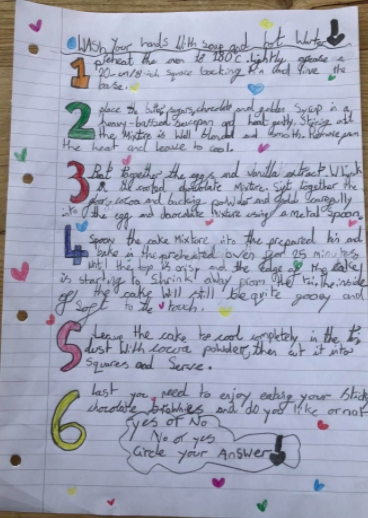 WASH your hands With soup and hot Water
1 preheat the oven to 180°c. lightly grease a
20cm/8inch square backing tin and line the
base.
2 place the sugar, chocolate and golden Syrup in a
heavy-saucepan and heat gently Stirring until
the Mixture is Well blended and smooth. Remove from
the heat and leave to cool.
3 Beat together the eggs and vanilla extract. Whisk
in the cooled chocolate Mixture. Sift together the
flour, cocoa and backing powder and fold carefully
into the egg and chocolate Mixture using a Metal Spoon.
4 Spoon the cake Mixture into the prepared tin and
bake in the preheated oven for 25 minutes
until the top is crisp and the edge of the cake
is starting to Shrink away from the tin. the inside
of the cake Will still be quite gooey and
Soft to the touch.
5 Leave the cake to cool completely in the tin
dust With cocoa powder, then cut it into
Squares and Serve.
6 last you need to enjoy eating your Sticky
chocolate brownies and do you like or not
yes or No
No or yes
Circle your Answer